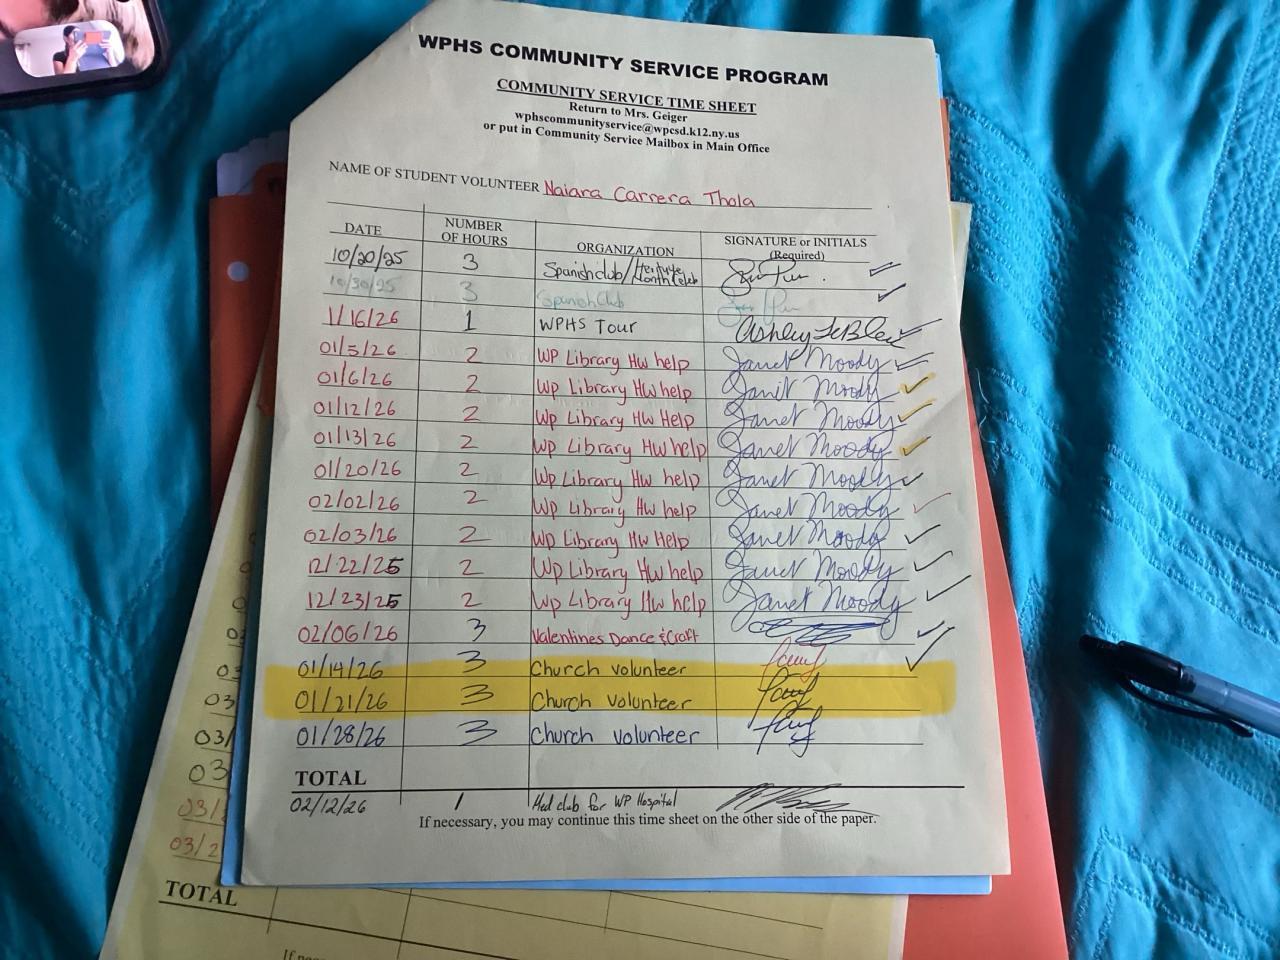 WPHS COMMUNITY SERVICE PROGRAM
COMMUNITY SERVICE TIME SHEET
Return to Mrs. Geiger
wphscommunityservice@wpcsd.k12.ny.us
or put in Community Service Mailbox in Main Office
NAME OF STUDENT VOLUNTEER Naiara Carrera Thola
DATE NUMBER OF HOURS ORGANIZATION SIGNATURE or INITIALS (Required)
10/20/25 3 Spanish club/Heritage Month Celeb
10/30/25 3 Spanish Club
1/16/26 1 WPHS Tour Ashley LeBlen
01/5/26 2 WP Library HW help Janet Moody
01/6/26 2 WP Library HW help Janet Moody
01/12/26 2 WP Library HW Help Janet Moody
01/13/26 2 WP Library HW help Janet Moody
01/20/26 2 Wp Library Hw help Janet Moody
02/02/26 2 Wp Library Hw help Janet Moody
02/03/26 2 Wp Library Hw Help Janet Moody
12/22/25 2 Wp Library Hw help Janet Moody
12/23/25 2 Wp Library Hw help Janet Moody
02/06/26 3 Valentines Dance & Craft
01/14/26 3 Church volunteer
01/21/26 3 Church volunteer
01/28/26 3 Church volunteer
TOTAL
02/12/26 1 Med club for WP Hospital
If necessary, you may continue this time sheet on the other side of the paper.
03/
03
03/2
03/2
TOTAL